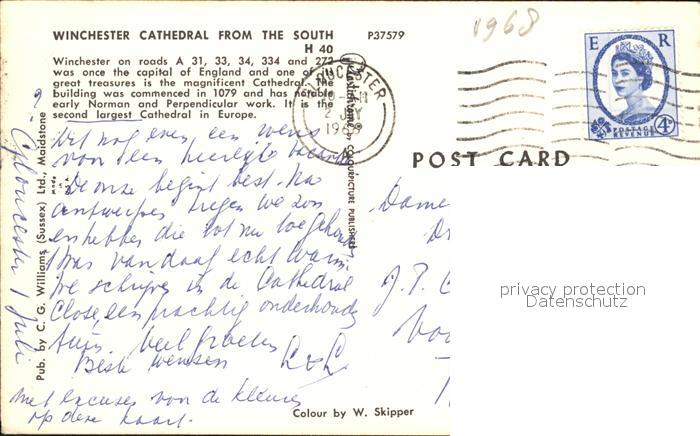 WINCHESTER CATHEDRAL FROM THE SOUTH P37579
H 40
Winchester on roads A 31, 33, 34, 334 and 272
was once the capital of England and one of
great treasures is the magnificent Cathedral. The
building was commenced in 1079 and has notable
early Norman and Perpendicular work. It is the
second largest Cathedral in Europe.
1968
GLOUCESTER
1968
E R
POSTAGE
REVENUE
4D
POST CARD
Gloucester 1 juli
Dit nog even een wens
voor een heerlijke vacantie
De onze begint best. Na
antwerpen kregen we zon
en hebben die tot nu toe gehouden
't was vandaag echt warm.
We schrijven in de Cathedral
Close, een prachtig onderhouden
tuin. Veel groeten
Beste wensen L & L
met excuses voor de kleuren
op deze kaart.
Dame
J. P.
Pub. by C. G. Williams (Sussex) Ltd., Maidstone
COLOURPICTURE PUBLISHERS
Colour by W. Skipper
privacy protection
Datenschutz